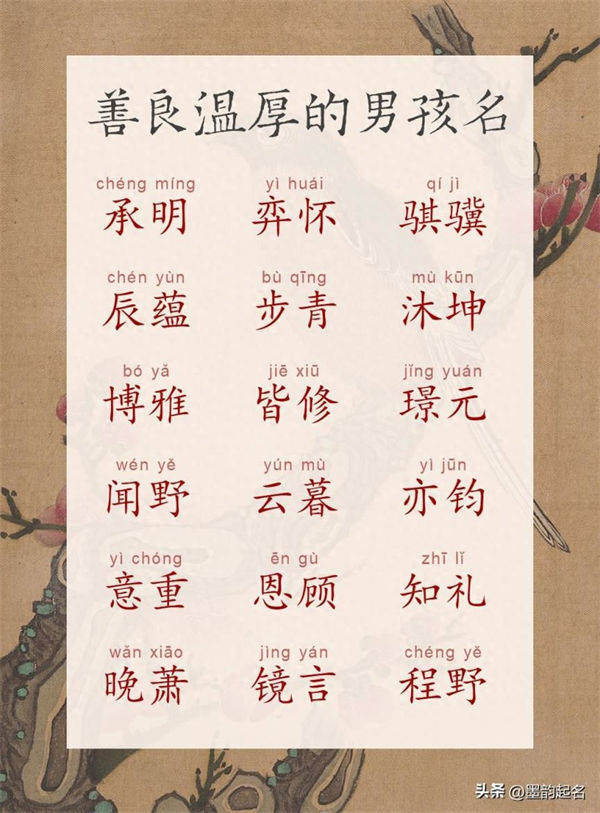 善良温厚的男孩名
chéng míng yì huái qí jì
承明 弈怀 骐骥
chén yùn bù qīng mù kūn
辰蕴 步青 沐坤
bó yǎ jiē xiū jǐng yuán
博雅 皆修 璟元
wén yě yún mù yì jūn
闻野 云暮 亦钧
yì chóng ēn gù zhī lǐ
意重 恩顾 知礼
wǎn xiāo jìng yán chéng yě
晚萧 镜言 程野
头条 @墨韵起名